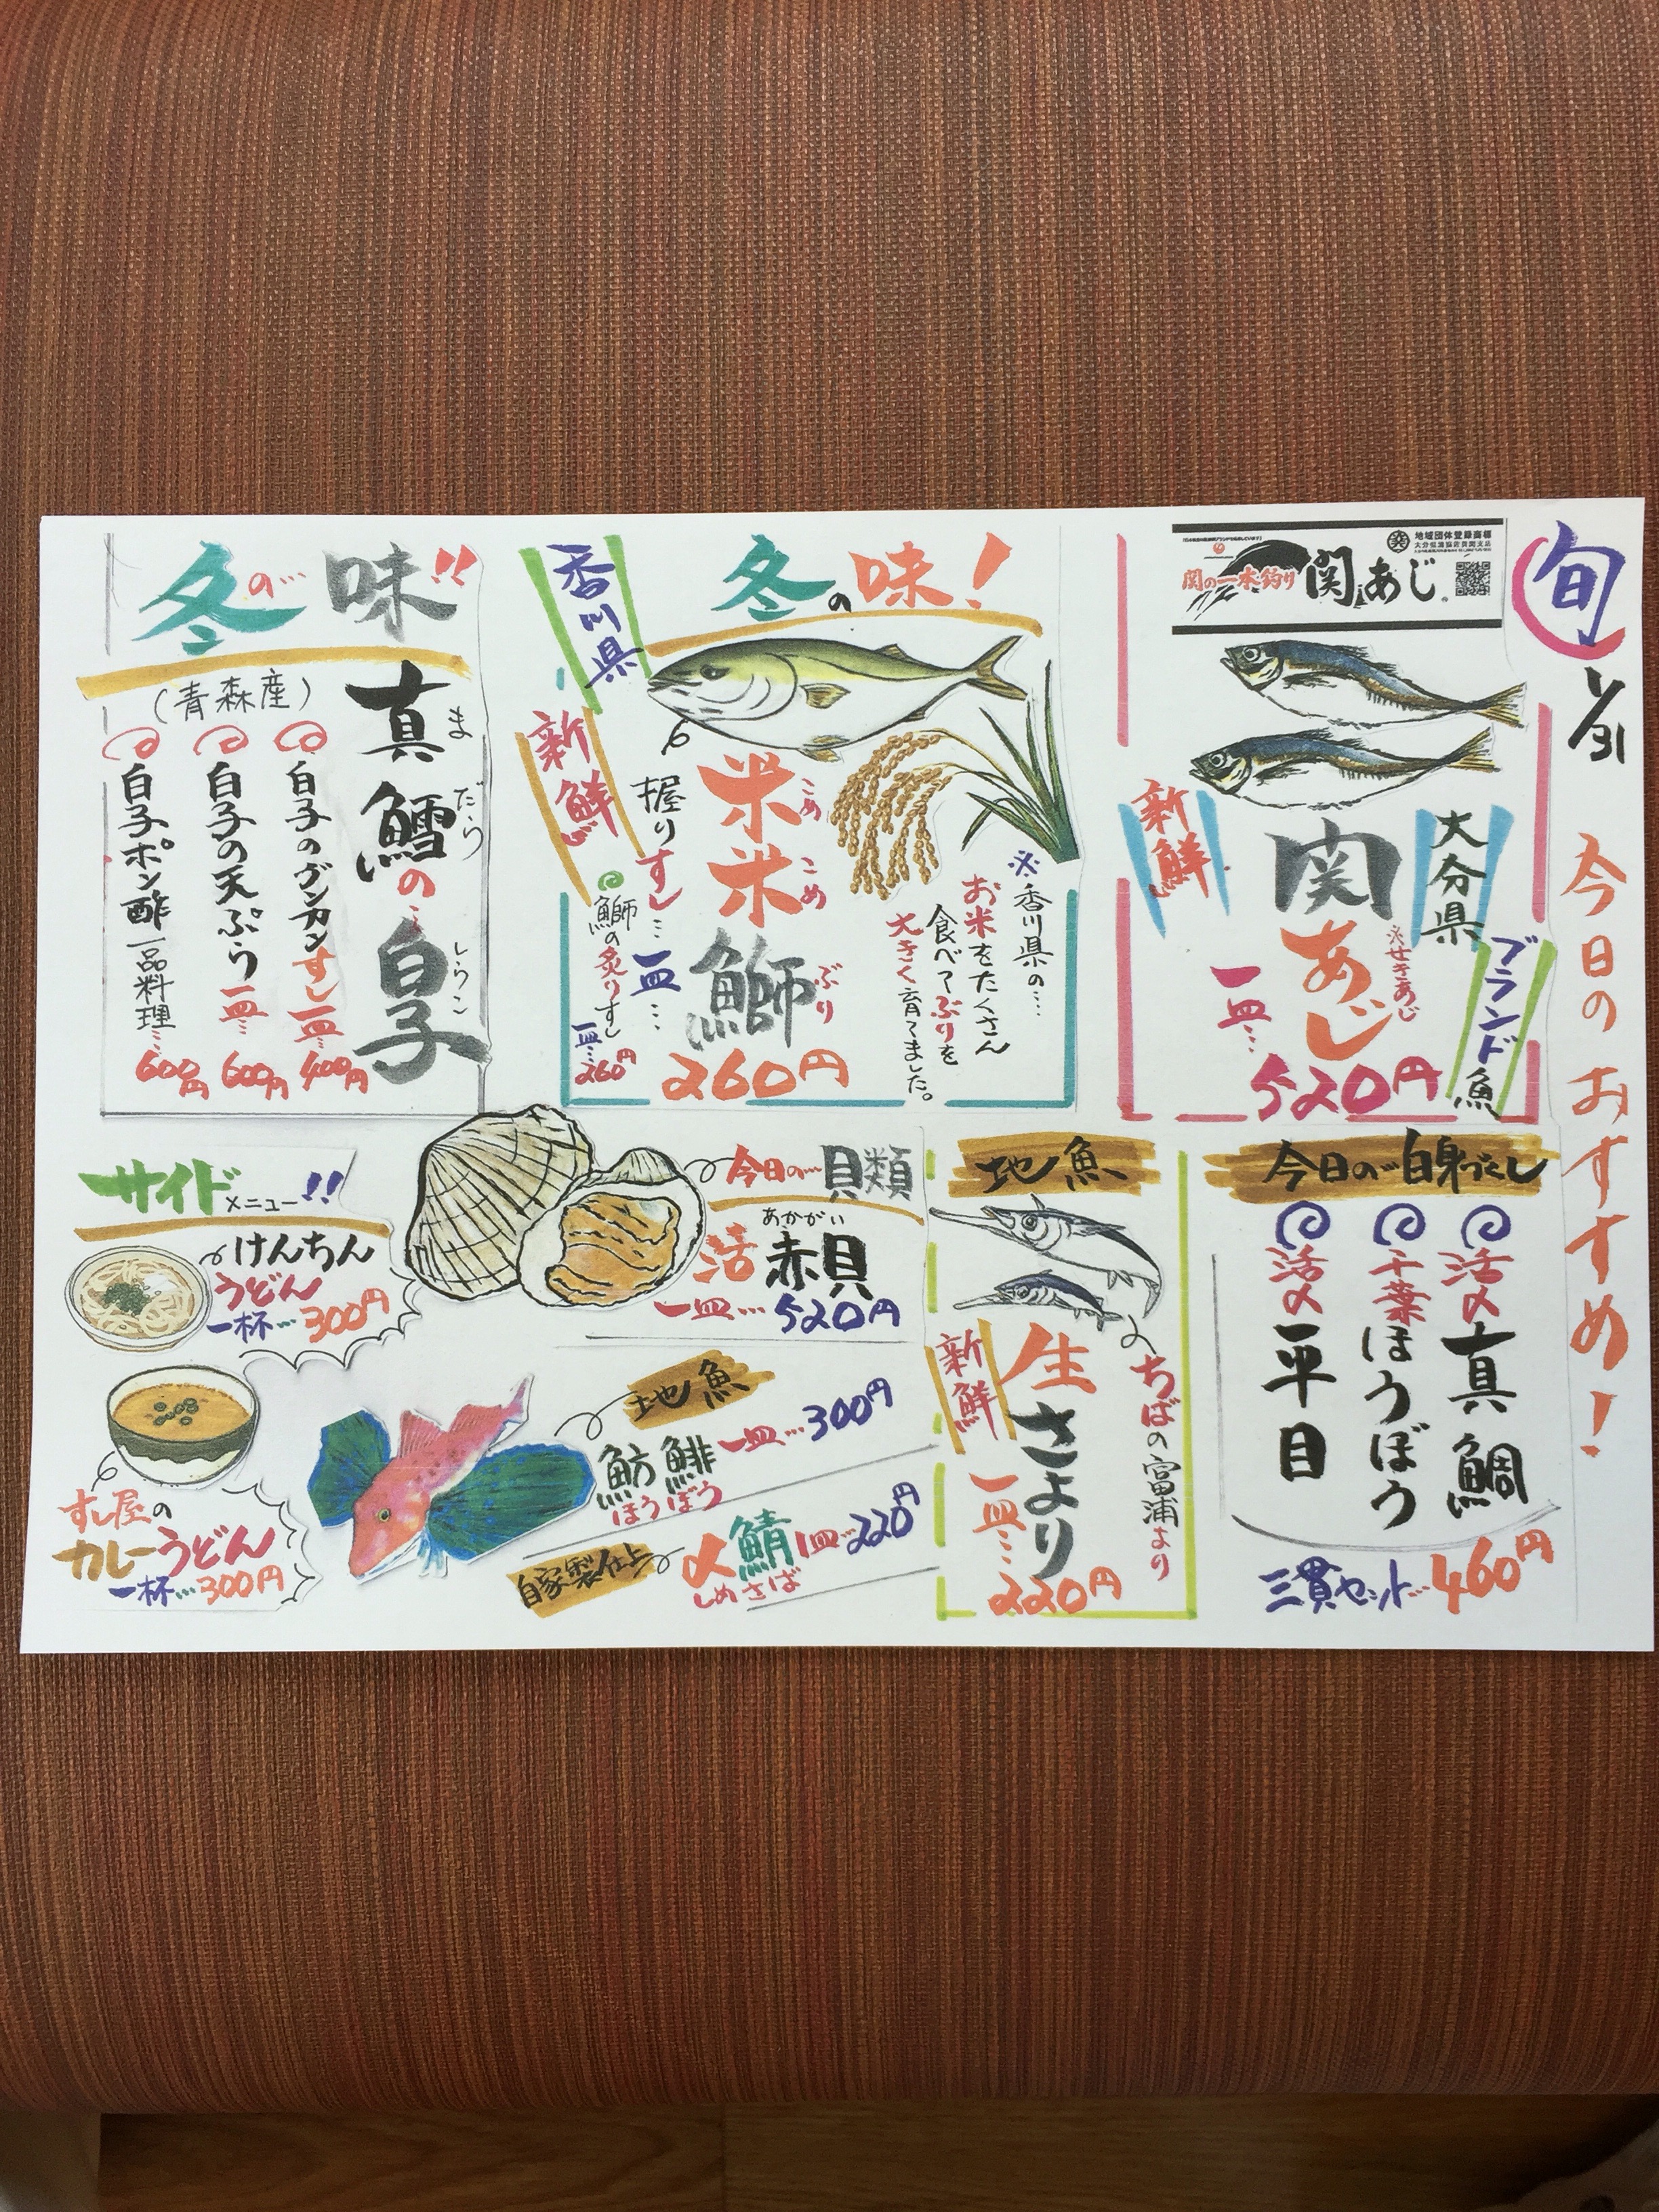 旬
1/31
今日のおすすめ!
地域団体登録商標
関の一本釣り
関あじ
大分県
ブランド魚
新鮮
関あじ
※せきあじ
一皿…
520円
冬の味!
香川県
新鮮
米米鰤
こめこめぶり
260円
握りすし…一皿…
鰤の炙りすし
一皿…260円
※香川県の…
お米をたくさん
食べてぶりを
大きく育てました。
冬の…味!!
真鱈の…白子
まだら しらこ
(青森産)
白子のグンカンすし一皿…400円
白子の天ぷら一皿…600円
白子ポン酢一品料理…600円
今日の…白身づくし
活〆真鯛
千葉ほうぼう
活〆平目
三貫セット…460円
地魚
ちばの富浦より
新鮮
生さより
一皿…
220円
今日の…貝類
あかがい
活赤貝
一皿…520円
地魚
魴鮄一皿…300円
ほうぼう
自家製仕上
〆鯖1皿…220円
しめさば
サイドメニュー!!
けんちん
うどん
一杯…300円
すし屋の
カレーうどん
一杯…300円